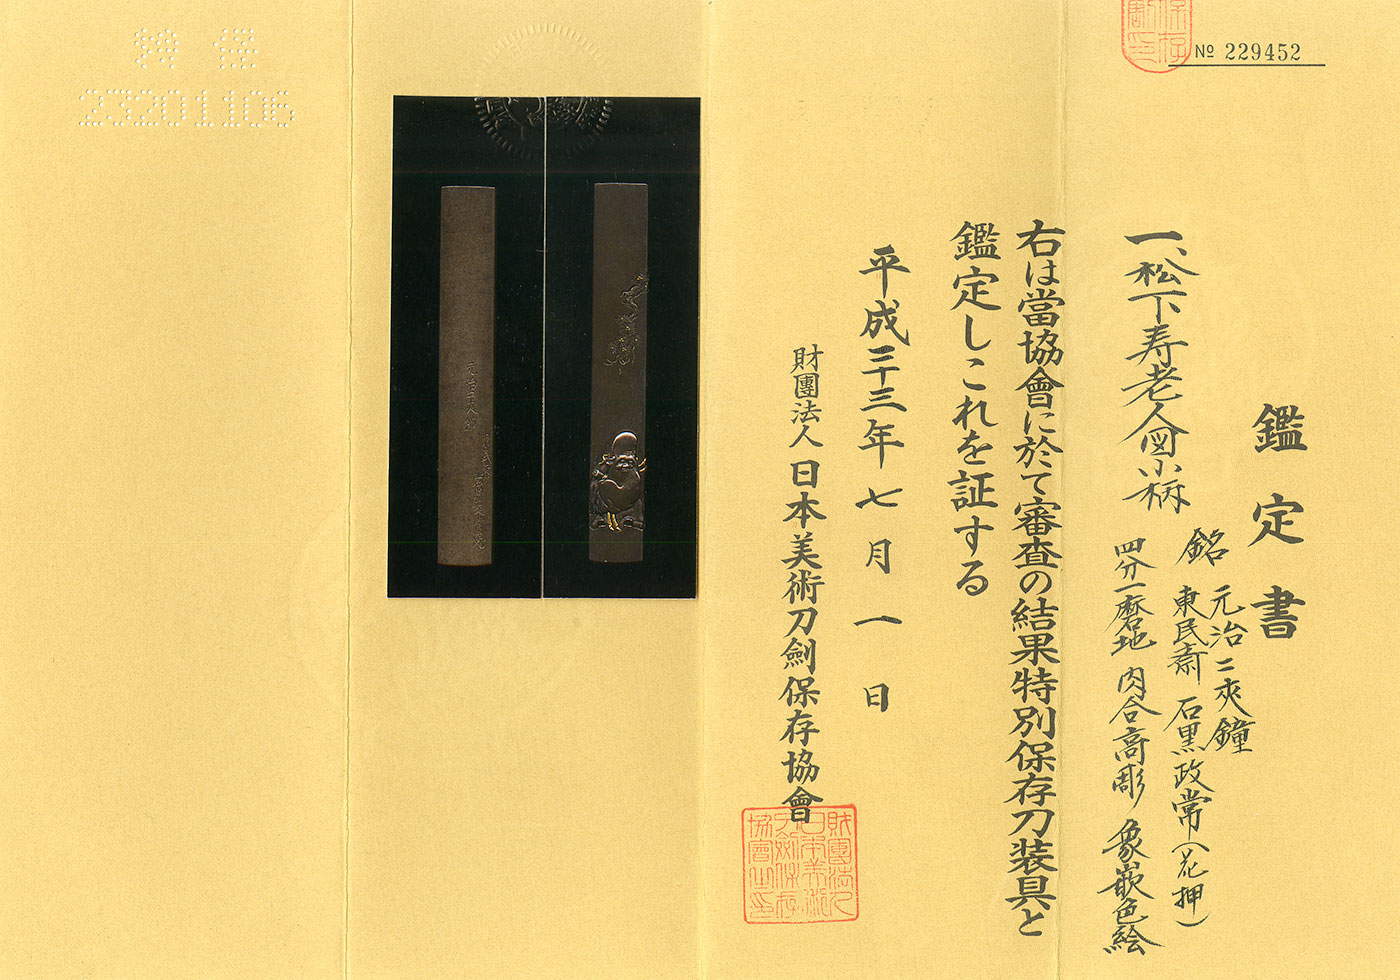 № 229452
鑑定書
一、松下寿老人図小柄
銘 元治二夾鐘
東民斎 石黒政常(花押)
四分一磨地 肉合高彫 象嵌色絵
右は當協會に於て審査の結果特別保存刀装具と
鑑定しこれを証する
平成二十三年七月一日
財團法人日本美術刀劍保存協會
23201106